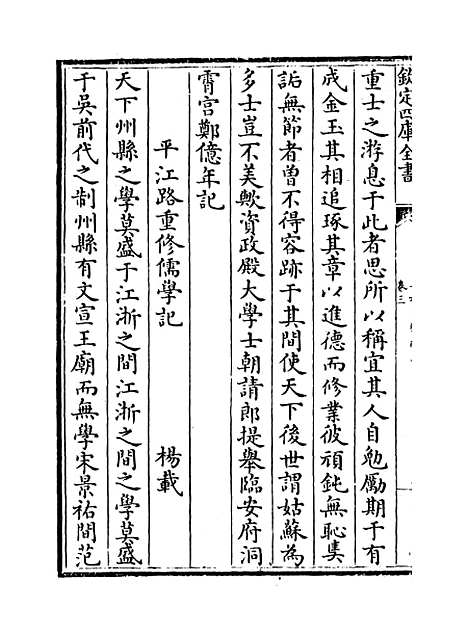 欽定四庫全書
卷三
重士之游息于此者思所以稱宜其人自勉勵期于有
成金玉其相追琢其章以進德而修業彼頑鈍無恥奊
詬無節者曽不得容跡于其間使天下後世謂姑蘇為
多士豈不美歟資政殿大學士朝請郎提舉臨安府洞
霄宫鄭億年記
平江路重修儒學記　楊載
天下州縣之學莫盛于江浙之間江浙之間之學莫盛
于吳前代之制州縣有文宣王廟而無學宋景祐間范